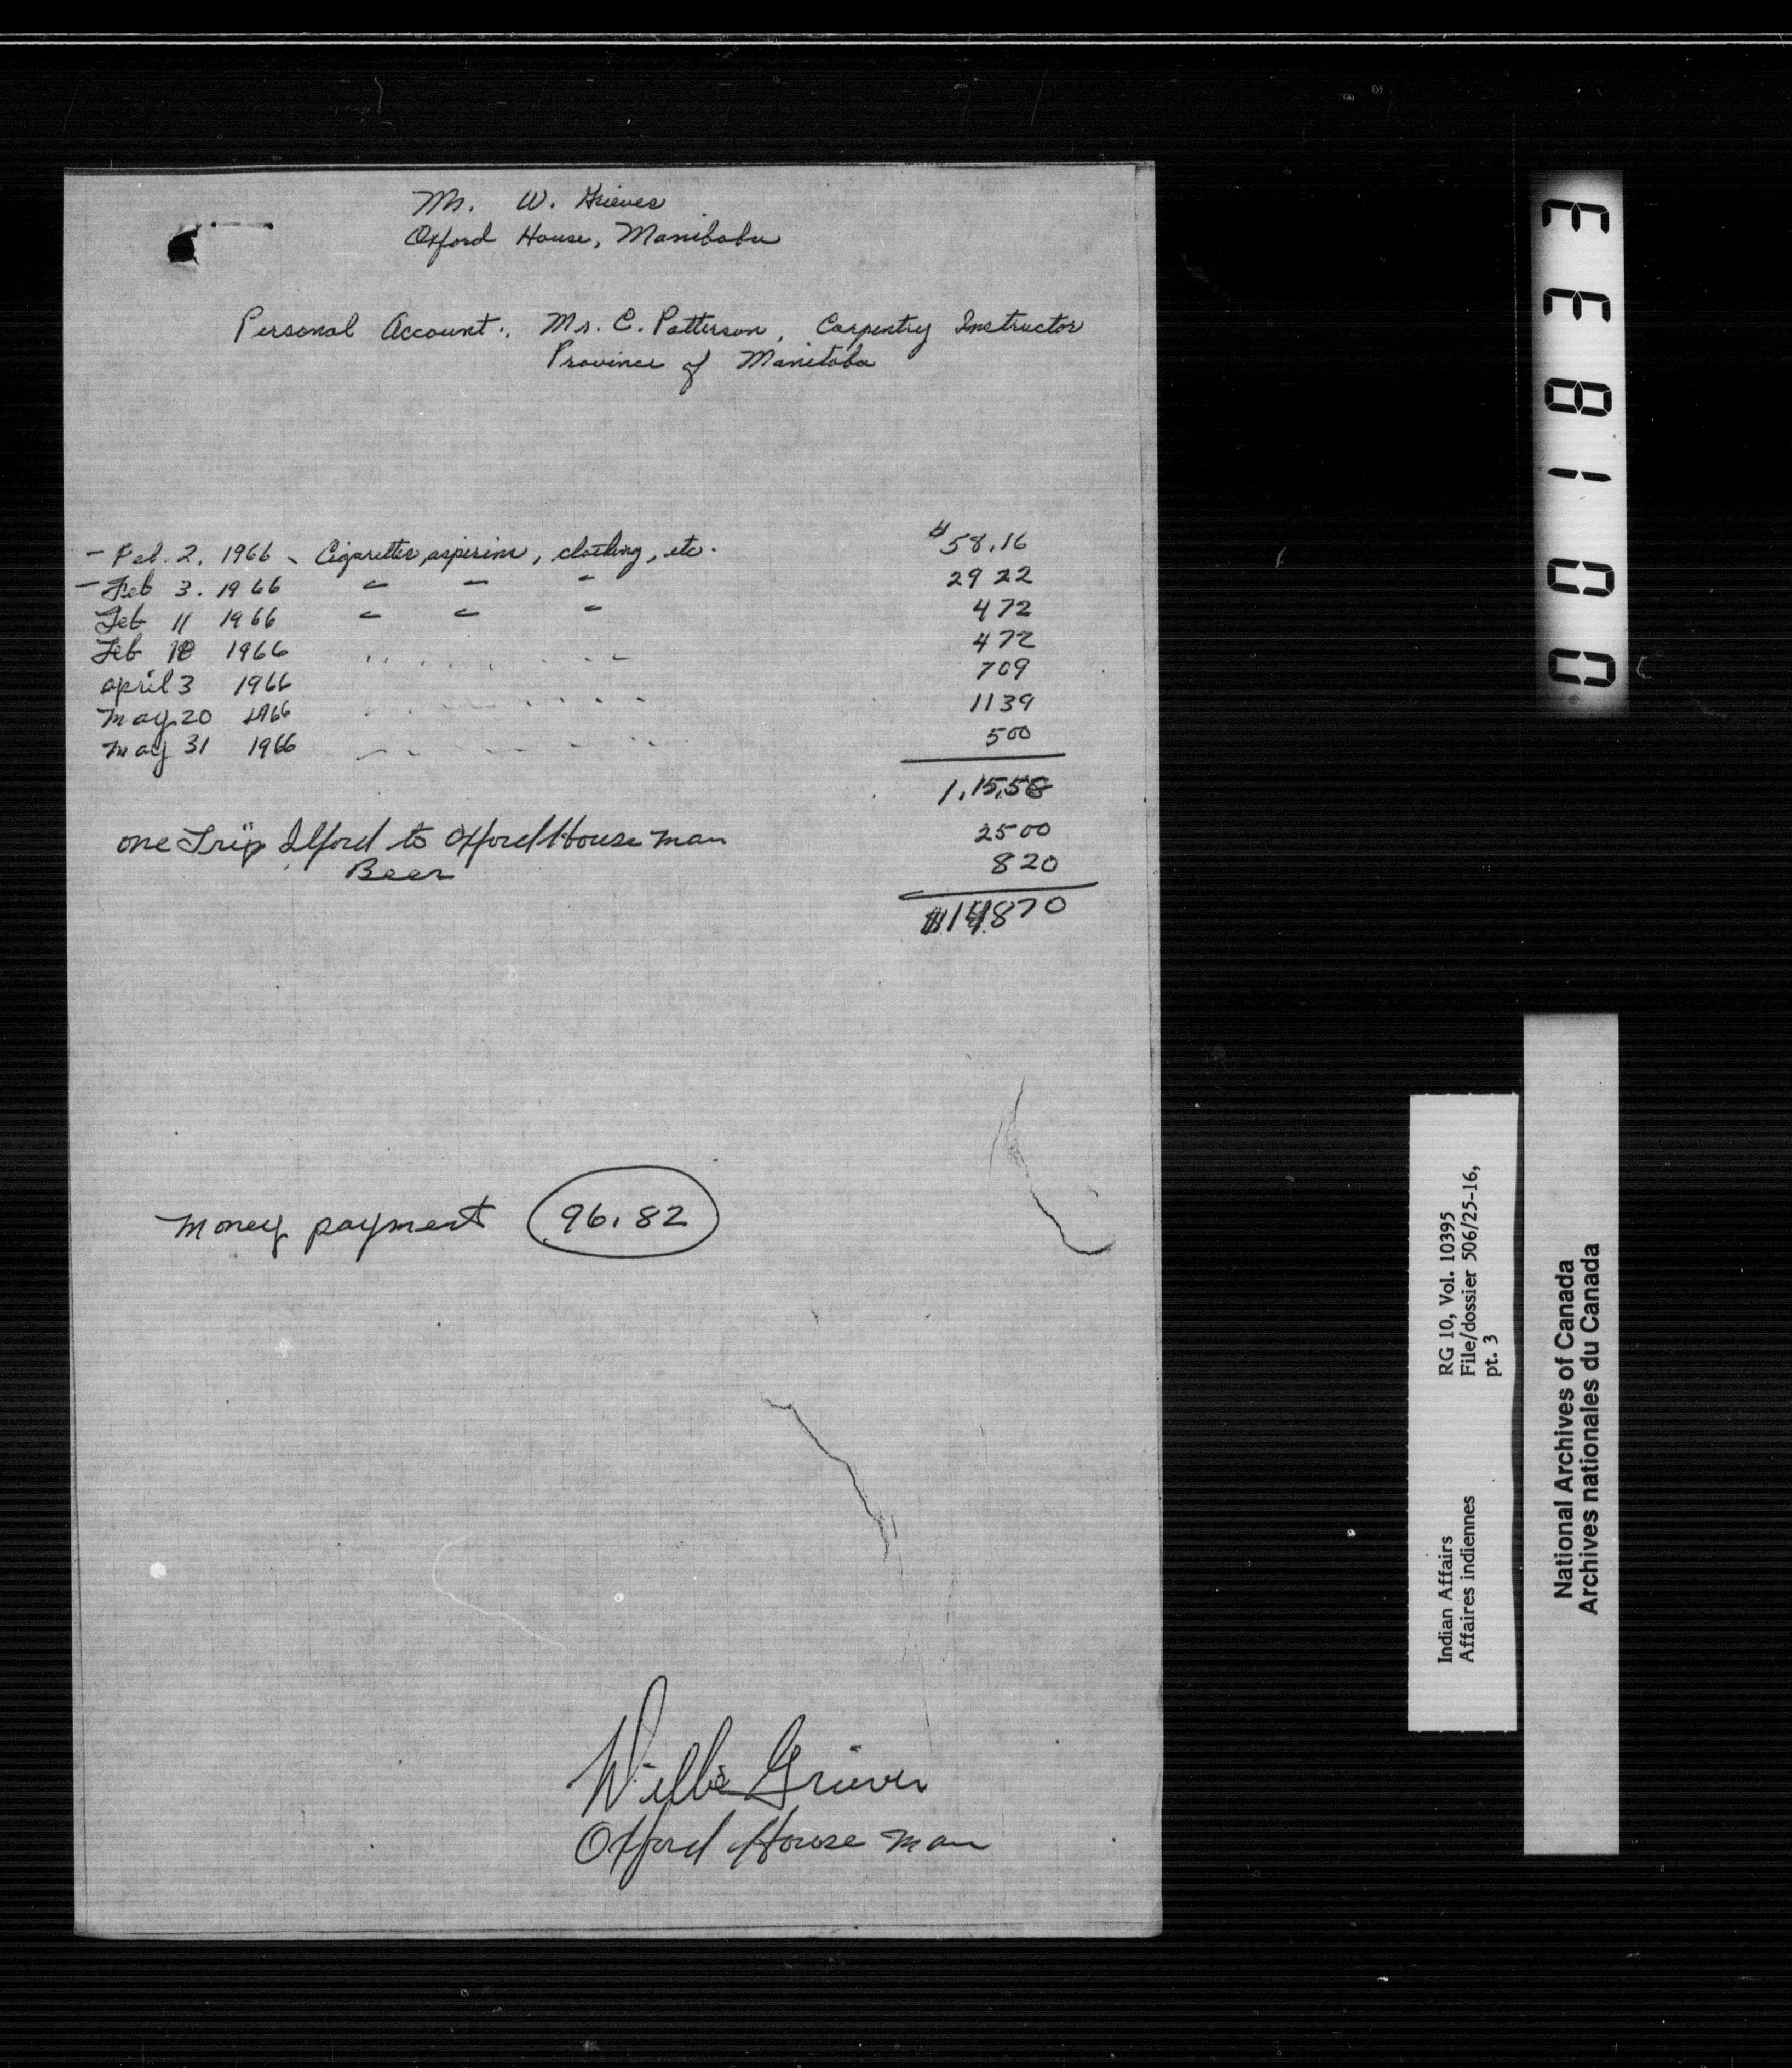 Mr. W. Grieves
Oxford House, Manitoba
Personal Account:. Mr. C. Patterson, Carpentry Instructor
Province of Manitoba
- Feb. 2, 1966 - Cigarettes, aspirins, clothing, etc. $58.16
- Feb 3. 1966 " " " 29 22
Feb 11 1966 " " " 4 72
Feb 18 1966 " " " 4 72
april 3 1966 7 09
May 20 1966 " " " 11 39
May 31 1966 " " " 5 00
1,15,58
one Trip Ilford to Oxford House man 25 00
Beer 8 20
$148 70
Money payment 96.82
Willie Grieves
Oxford House man
001833
RG 10, Vol. 10395
File/dossier 506/25-16,
pt. 3
Indian Affairs
Affaires indiennes
National Archives of Canada
Archives nationales du Canada